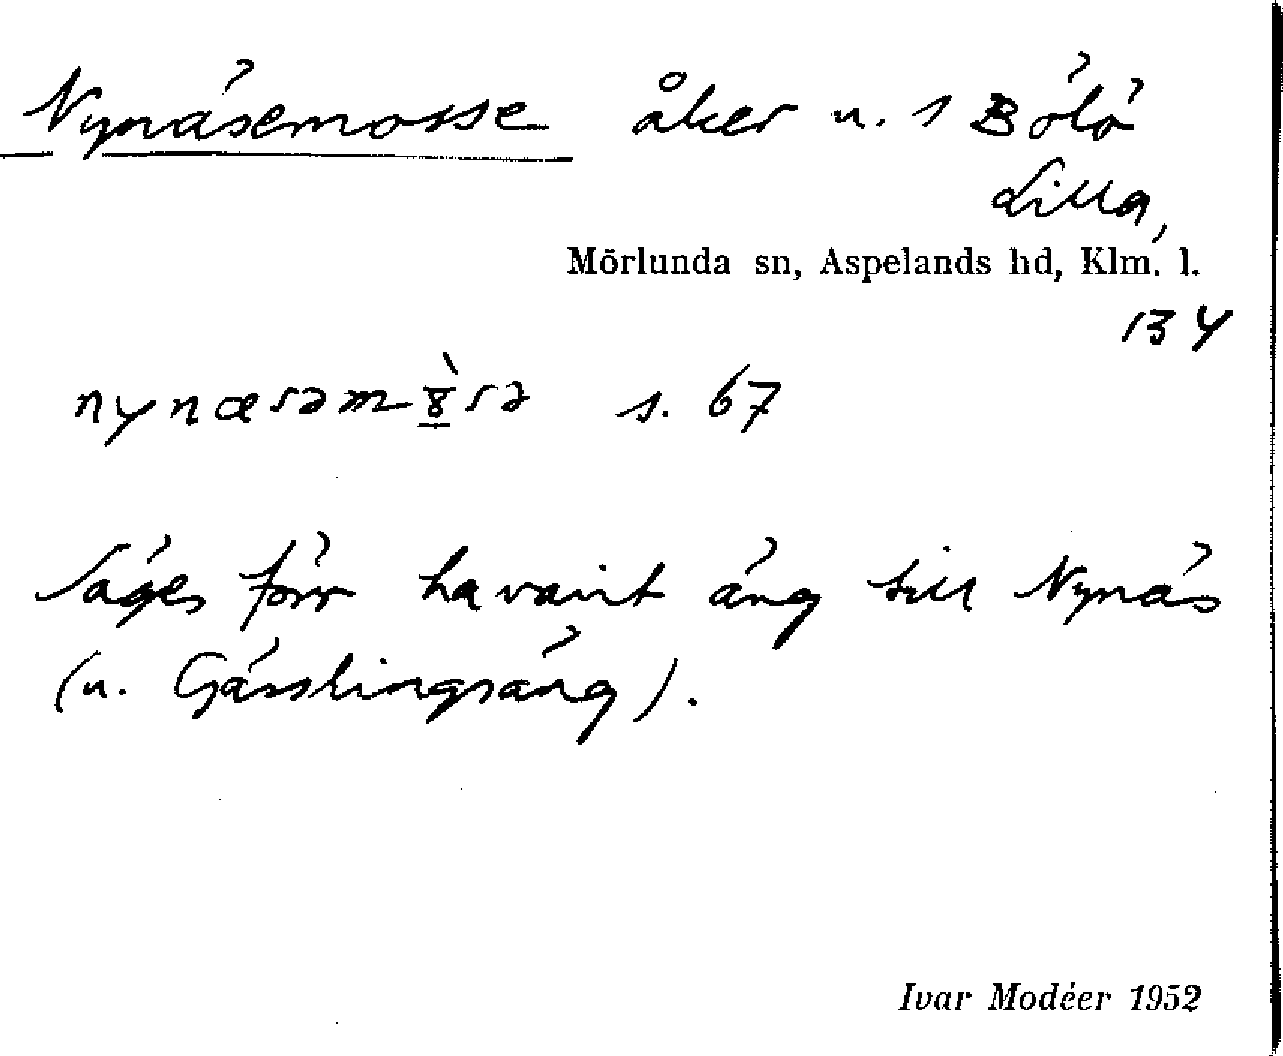 Nynäsemosse åker u. 1 Bölö
Lilla,
Mörlunda sn, Aspelands hd, Klm. l.
134
s. 67
Säges förr ha varit äng till Nynäs
(u. Gässlingsäng).
Ivar Modéer 1952